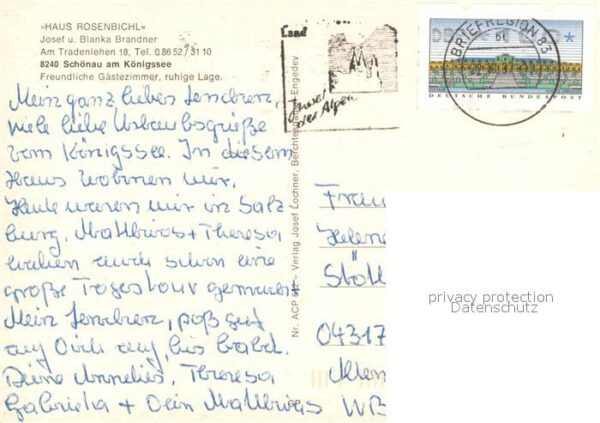 »HAUS ROSENBICHL«
Josef u. Blanka Brandner
Am Tradenlehen 18, Tel. 0 86 52 / 31 10
8240 Schönau am Königssee
Freundliche Gästezimmer, ruhige Lage.
Mein ganz liebes
viele liebe Urlaubsgrüße
vom Königssee. In diesem
Haus wohnen wir.
Heute waren wir in Salz
burg. Matthias + Theresa
haben auch schon eine
große Tagestour gemacht.
Mein paß gut
auf Dich auf, bis bald.
Deine Annelies, Theresa
Gabriela + Dein Matthias
Nr. ACP – Verlag Josef Lochner, Berchtesgaden-Engedey
Land
der Alpen
BRIEFREGION 83
DEUTSCHE BUNDESPOST
Frau
Helen
04317
privacy protection
Datenschutz